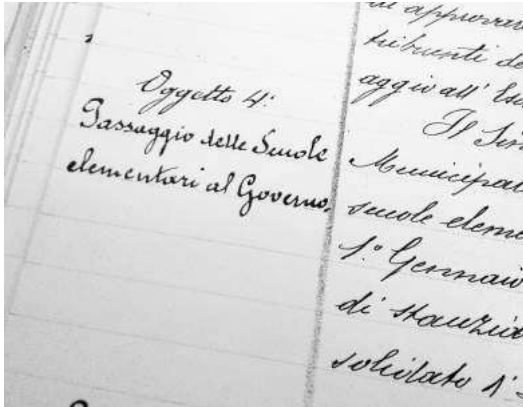 Oggetto 4:
Passaggio delle Scuole
elementari al Governo.
di approvar
tribuenti de
aggio all' Es
Il Sin
Municipal
scuole eleme
1.° Gennaio
di stanzia
solidato